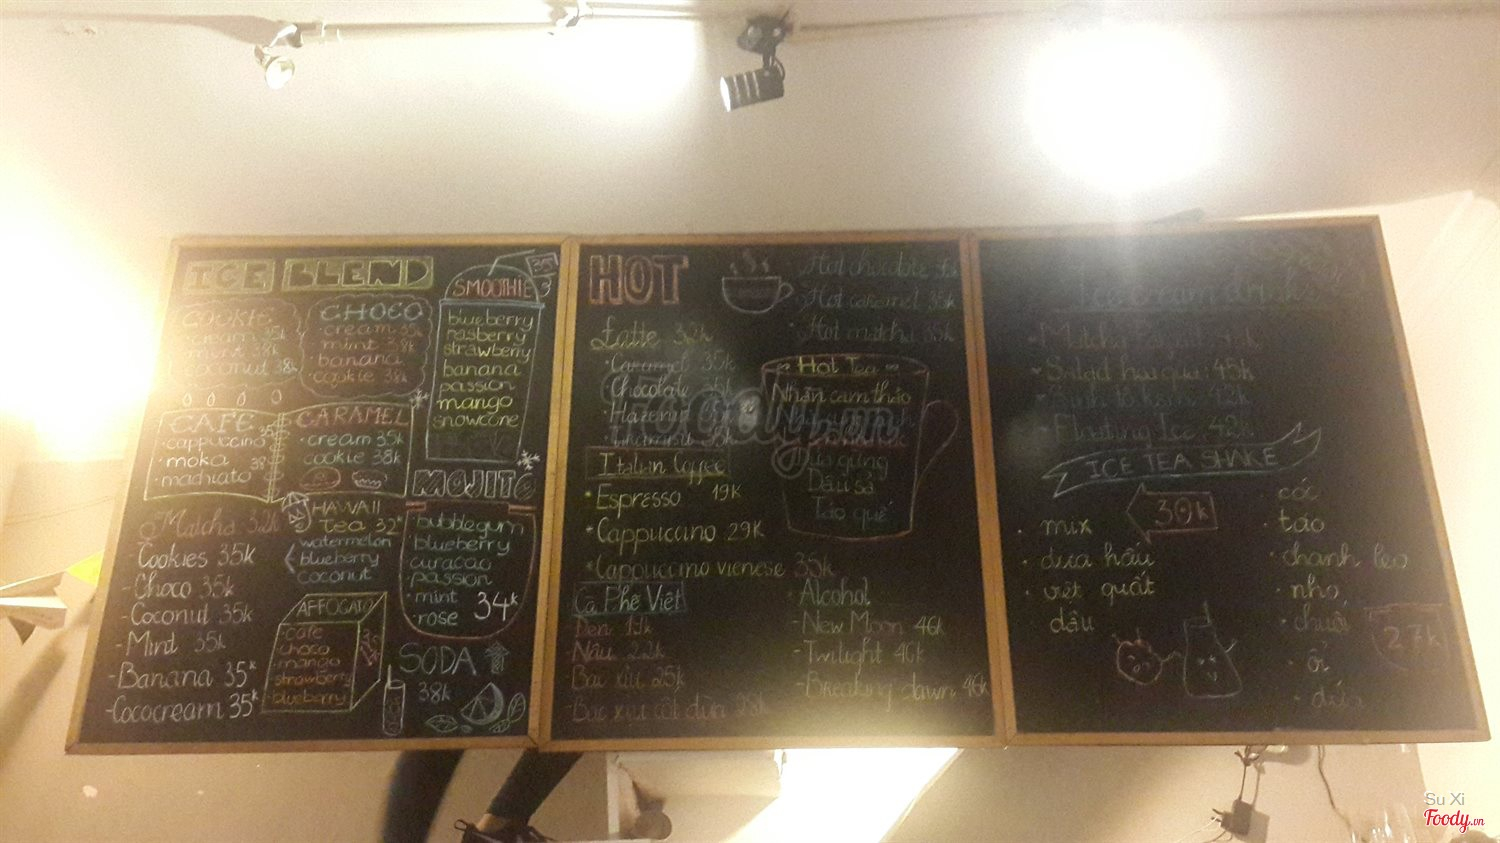 ICE BLEND
COOKIE
cream 35k
mint 38k
coconut 38k
CHOCO
cream 35k
mint 38k
banana
cookie 38k
SMOOTHIE
blueberry
rasberry
strawberry
banana
passion
mango
snowcone
CAFE
cappuccino 35k
moka 38k
machiato
CARAMEL
cream 35k
cookie 38k
MOJITO
bubblegum
blueberry
curacao
passion
mint
rose
34k
Matcha 32k
- Cookies 35k
- Choco 35k
- Coconut 35k
- Mint 35k
- Banana 35k
- Cococream 35k
HAWAII
Tea 32k
watermelon
blueberry
coconut
AFFOGATO
cafe
choco
mango
strawberry
blueberry
SODA
38k
HOT
Latte 32k
Caramel 35k
Chocolate
Hazelnut
Italian Coffee
Espresso 19k
Cappuccino 29k
Cappuccino vienese 35k
Cà Phê Việt
Đen 19k
Nâu 22k
Bạc xỉu 25k
Bạc xỉu cốt dừa
Hot chocolate
Hot caramel 35k
Hot matcha 35k
Hot Tea
Nhãn cam thảo
Dâu sả
Táo quế
Alcohol
- New Moon 46k
- Twilight 46k
- Breaking dawn 46k
Ice cream drink
Salad hoa quả: 45k
Floating Ice 42k
ICE TEA SHAKE
30k
mix
dưa hấu
việt quất
dâu
cóc
táo
chanh leo
nho
chuối
ổi
dứa
27k
Foody.vn
Su Xi
Foody.vn